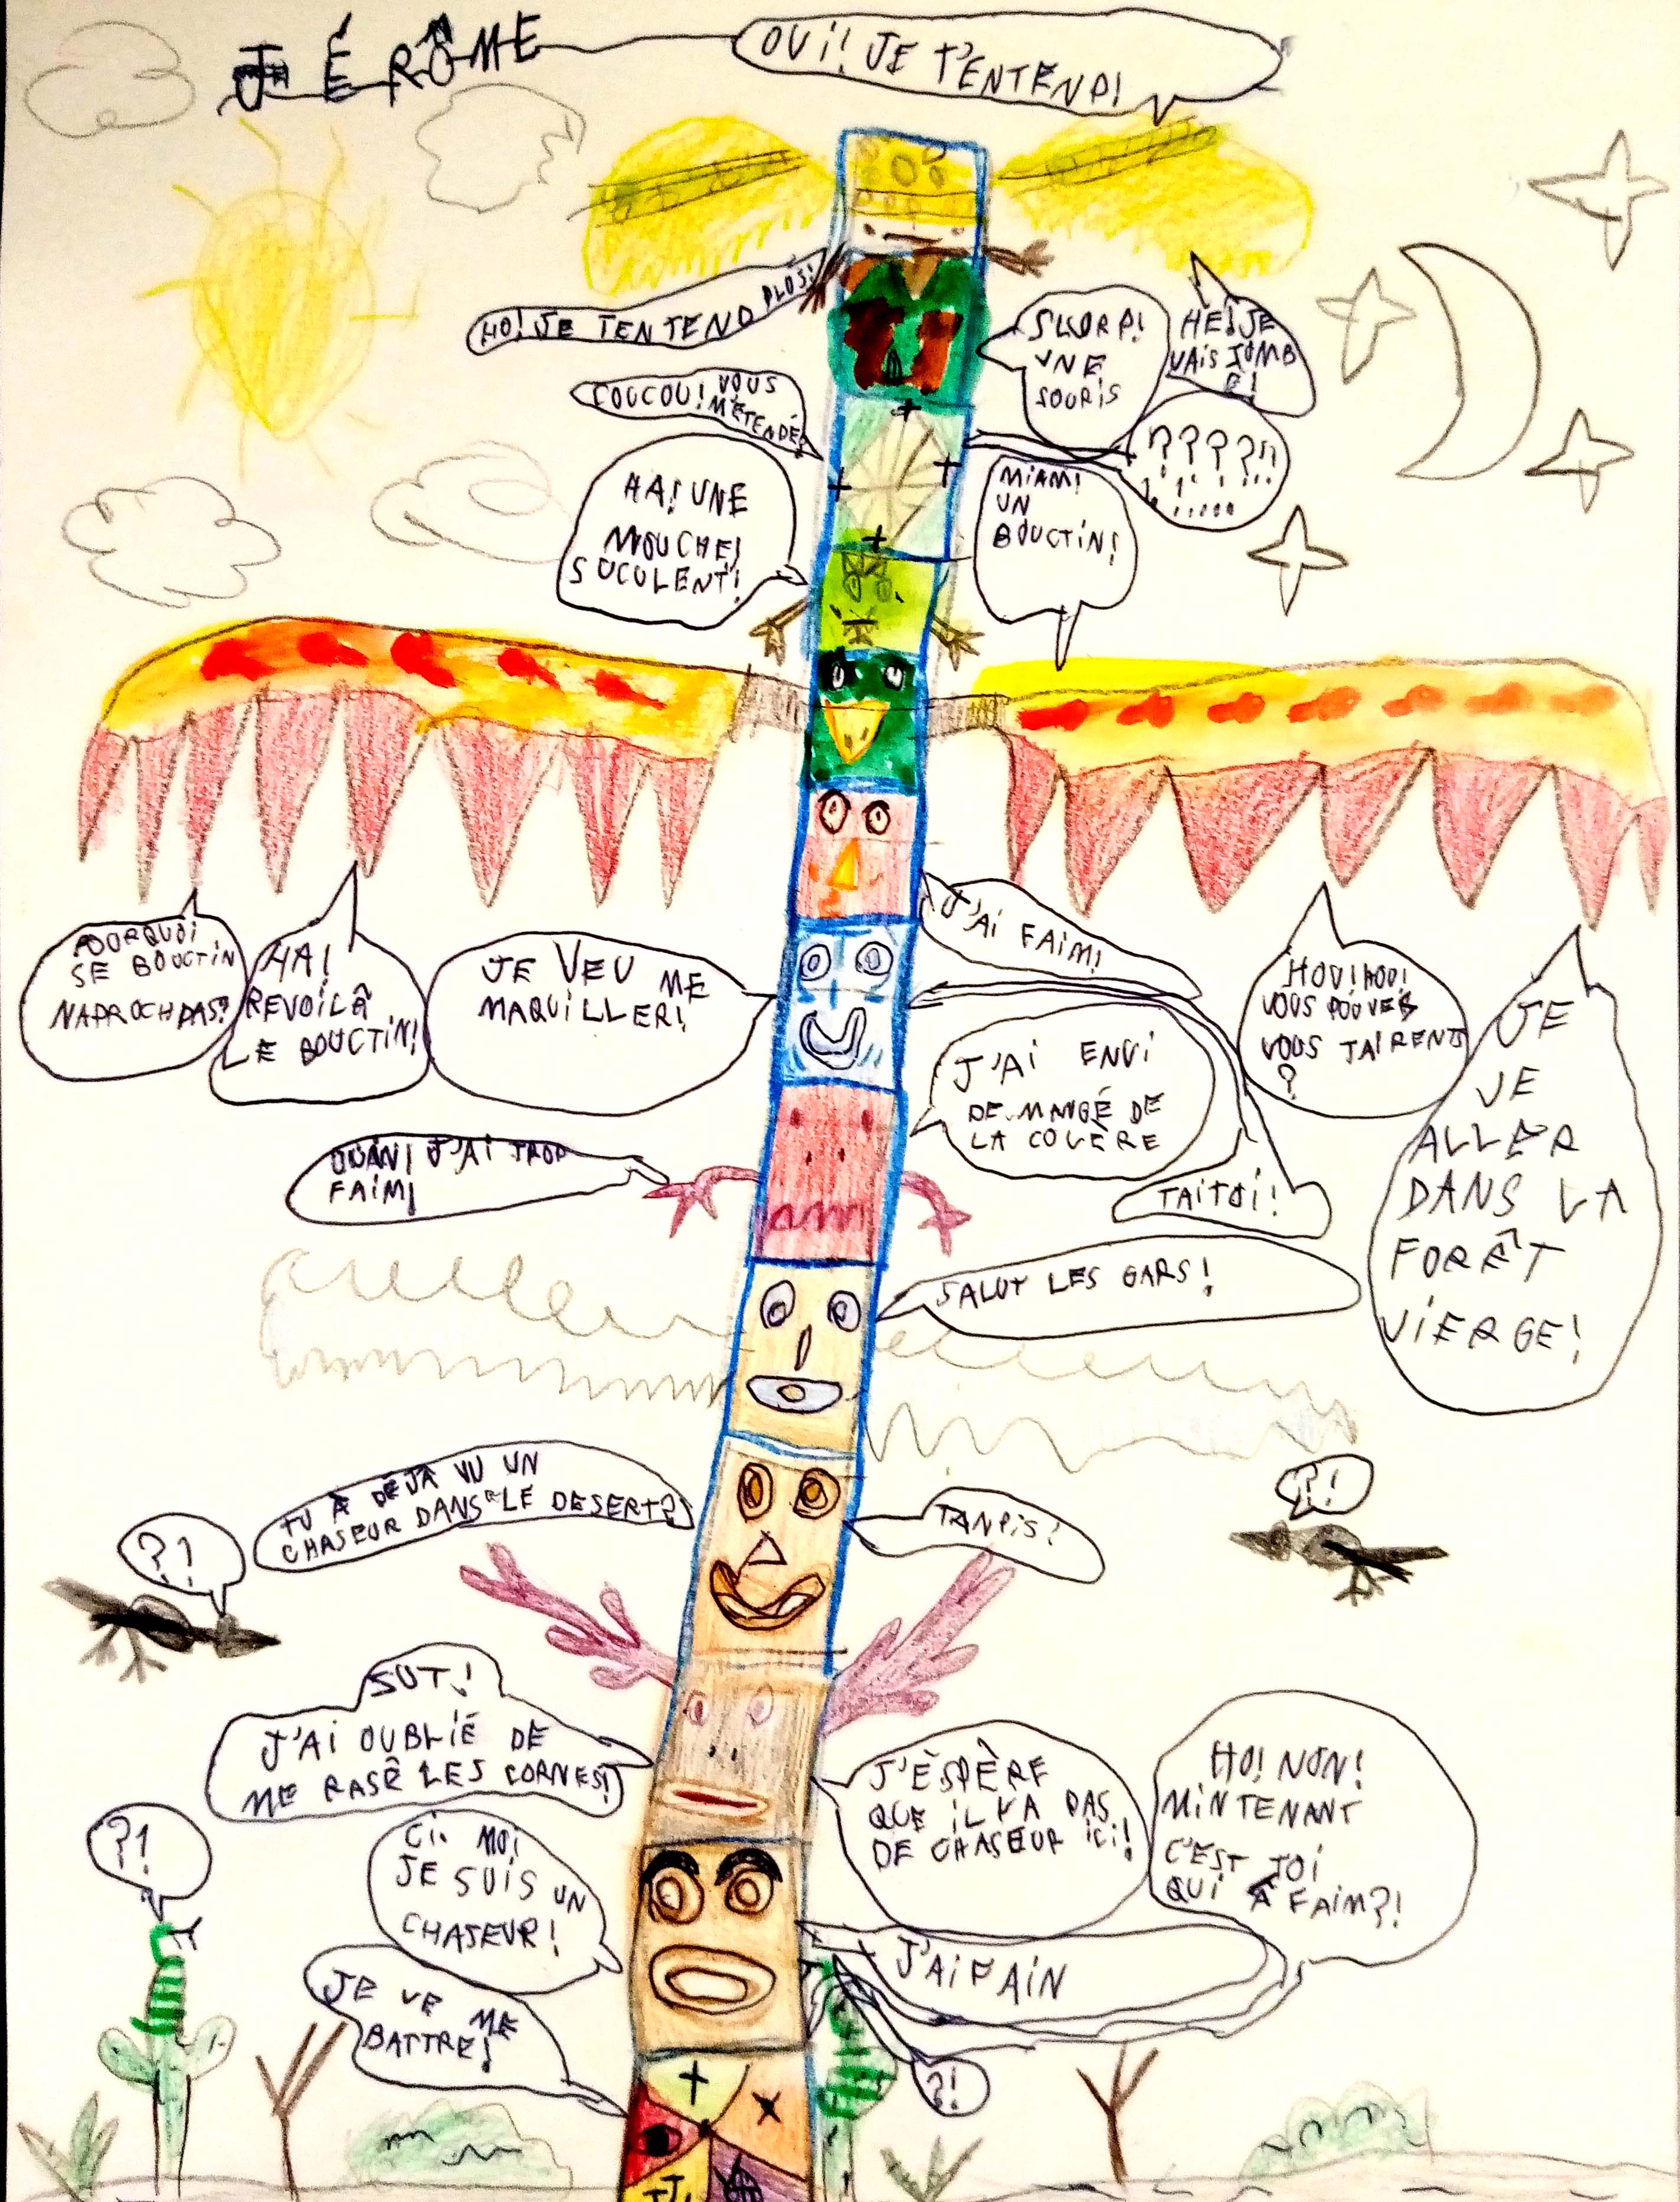 JÉRÔME
OUI! JE T'ENTEND!
HO! JE TENTEND PLUS!
SLURP!
UNE
SOURIS
HÉ! JE
VAIS TOMB
É!
COUCOU! VOUS
M'ETENDÉ
????!!
HA! UNE
MOUCHE!
SUCULENT!
MIAM!
UN
BOUCTIN!
POURQUOI
SE BOUCTIN
NAPROCH PAS?
HA!
REVOILÀ
LE BOUCTIN!
JE VEU ME
MAQUILLER!
J'AI FAIM!
HOU! HOU!
VOUS POUVER
VOUS TAIRENT
?
JE
VE
ALLER
DANS LA
FORÊT
VIERGE!
J'AI ENVI
DE MANGÉ DE
LA COLÈRE
QUAN! J'AI TROP
FAIM!
TAITOI!
SALUT LES GARS!
TU À DÉJÀ VU UN
CHASEUR DANS LE DESERT?
TANPIS!
?!
?!
SUT!
J'AI OUBLIÉ DE
ME RASÊ LES CORNES!
J'ÈSPÈRE
QUE IL YA PAS
DE CHASEUR ICI!
HO! NON!
MINTENANT
C'EST TOI
QUI À FAIM?!
?!
CI. MOI
JE SUIS UN
CHASEUR!
J'AI FAIN
JE VE ME
BATTRE!
?!